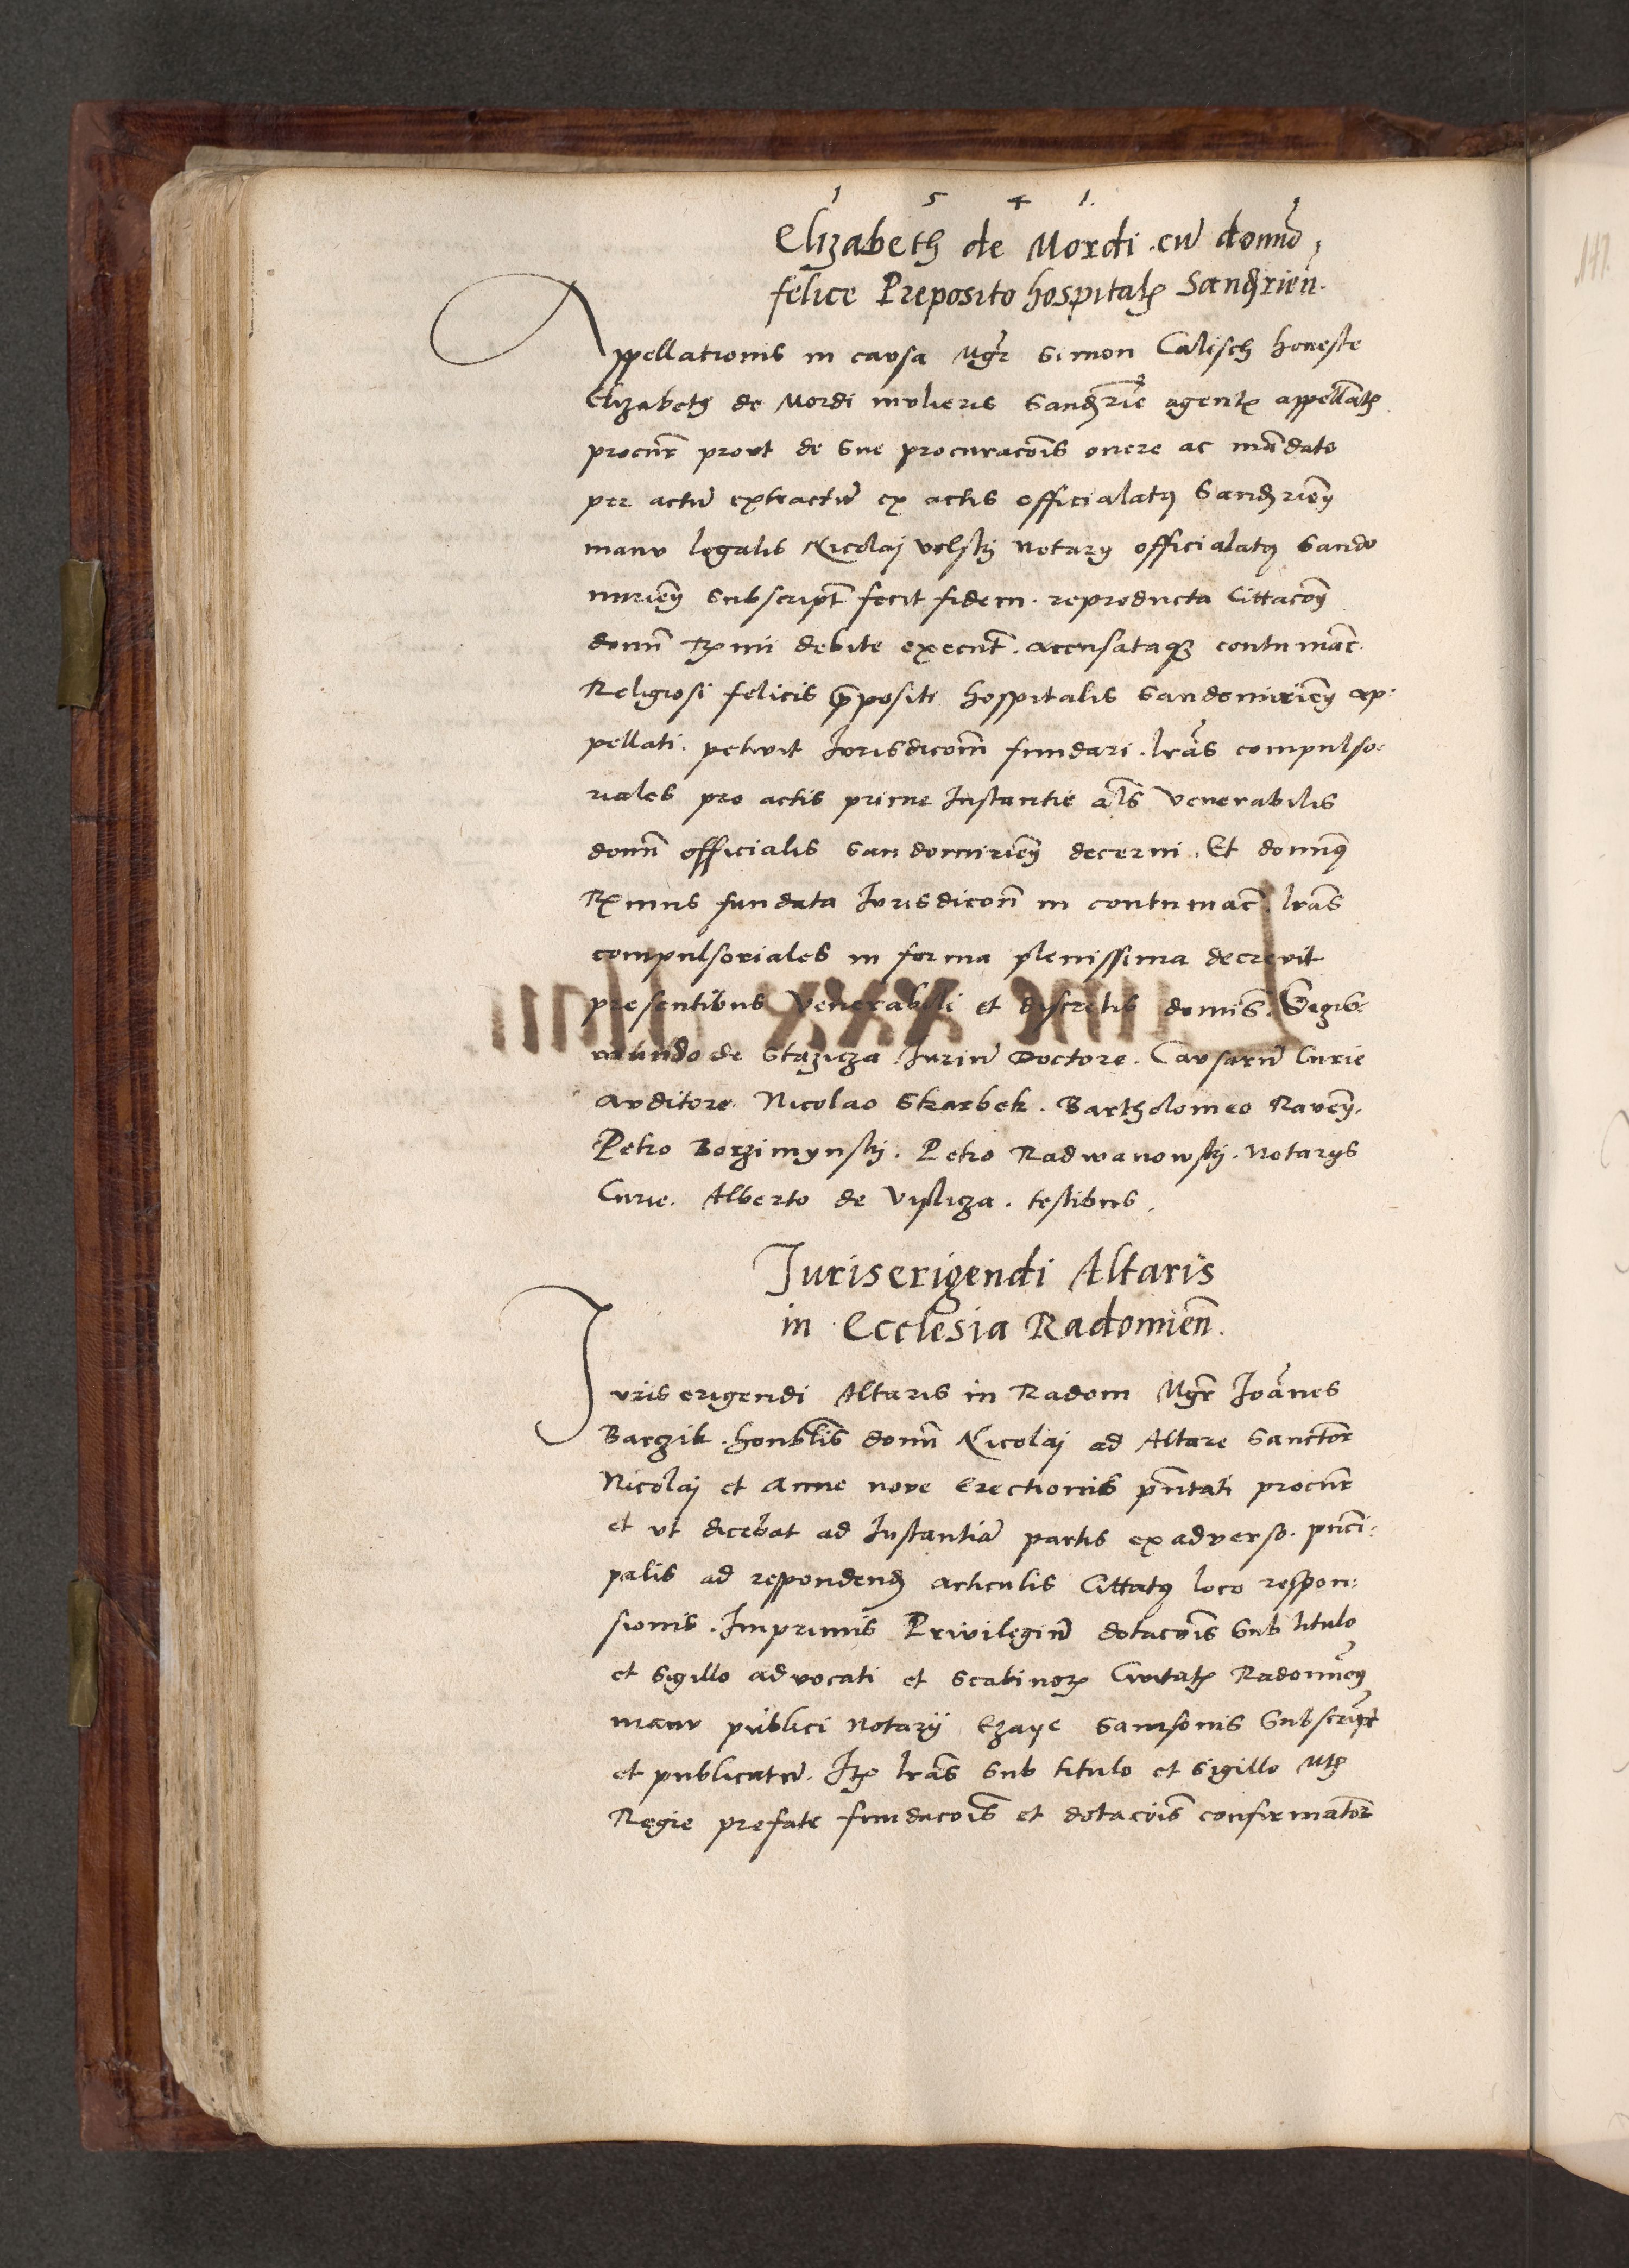 1 5 4 1.
Elizabeth de Mordi cū domīo
felice Preposito hospitalꝭ Sandꝫrien̄.
Appellationis in causa Mgr̄ Simon Calisch honeste
Elizabeth de Mordi mulieris Sandꝫrień agentꝭ appellātꝭ
procūr prout de sue procuracōis onere ac mādato
per actū extractū ex actis officialatꝰ Sandꝫrień
manu legalis Nicolaj notarij officialatꝰ Sando
mirień subscript̄ fecit fidem. reproducta Cittacōń
domī R̄mi debite execut̄. accusataqꝫ contumac̄.
Religiosi felicis p̄positi hospitalis Sandomirień ap:
pellati. petivit Jurisdicōm̄ fundari. lrās compulso:
riales pro actis prime Instantie als̄ Venerabilis
domī officialis Sandomirień decerni. Et domnꝰ
R̄mus fundata Jurisdicōn̄ in contumac̄. lrās
compulsoriales in forma plenissima decrevit
presentibus Venerabili et discretis domīs. Segis:
mundo de Stazicza Jurium Doctore. Causarū Curie
auditore. Nicolao Skarbek. Bartholomeo Raveń.
Petro Borzimynskj. Petro Radwanowskj. notarijs
Curie. Alberto de Visliza. testibus.
Juris erigendi Altaris
in Ecclesia Radomien̄.
Juris erigendi Altaris in Radom Mgr̄ Joānes
Barzik. honblīs domī Nicolaj ad Altare Sanctor̄
Nicolaj et Anne nove Erectionis pn̄tati procūr
et ut dicebat ad Instantiā partis ex adverso. prnci:
palis ad respondendꝫ articulis Cittatꝰ loco respon:
sionis. Imprimis Privilegiū dotacōis sub titulo
et sigillo advocati et scabinorꝭ Civitatꝭ Radomień
manu publici notarij Ezaye Samsonis subscript̄
et publicatū. Itꝭ lrās sub titulo et sigillo Mtꝭ
Regie prefate fundacōis et dotacōis confirmator̄